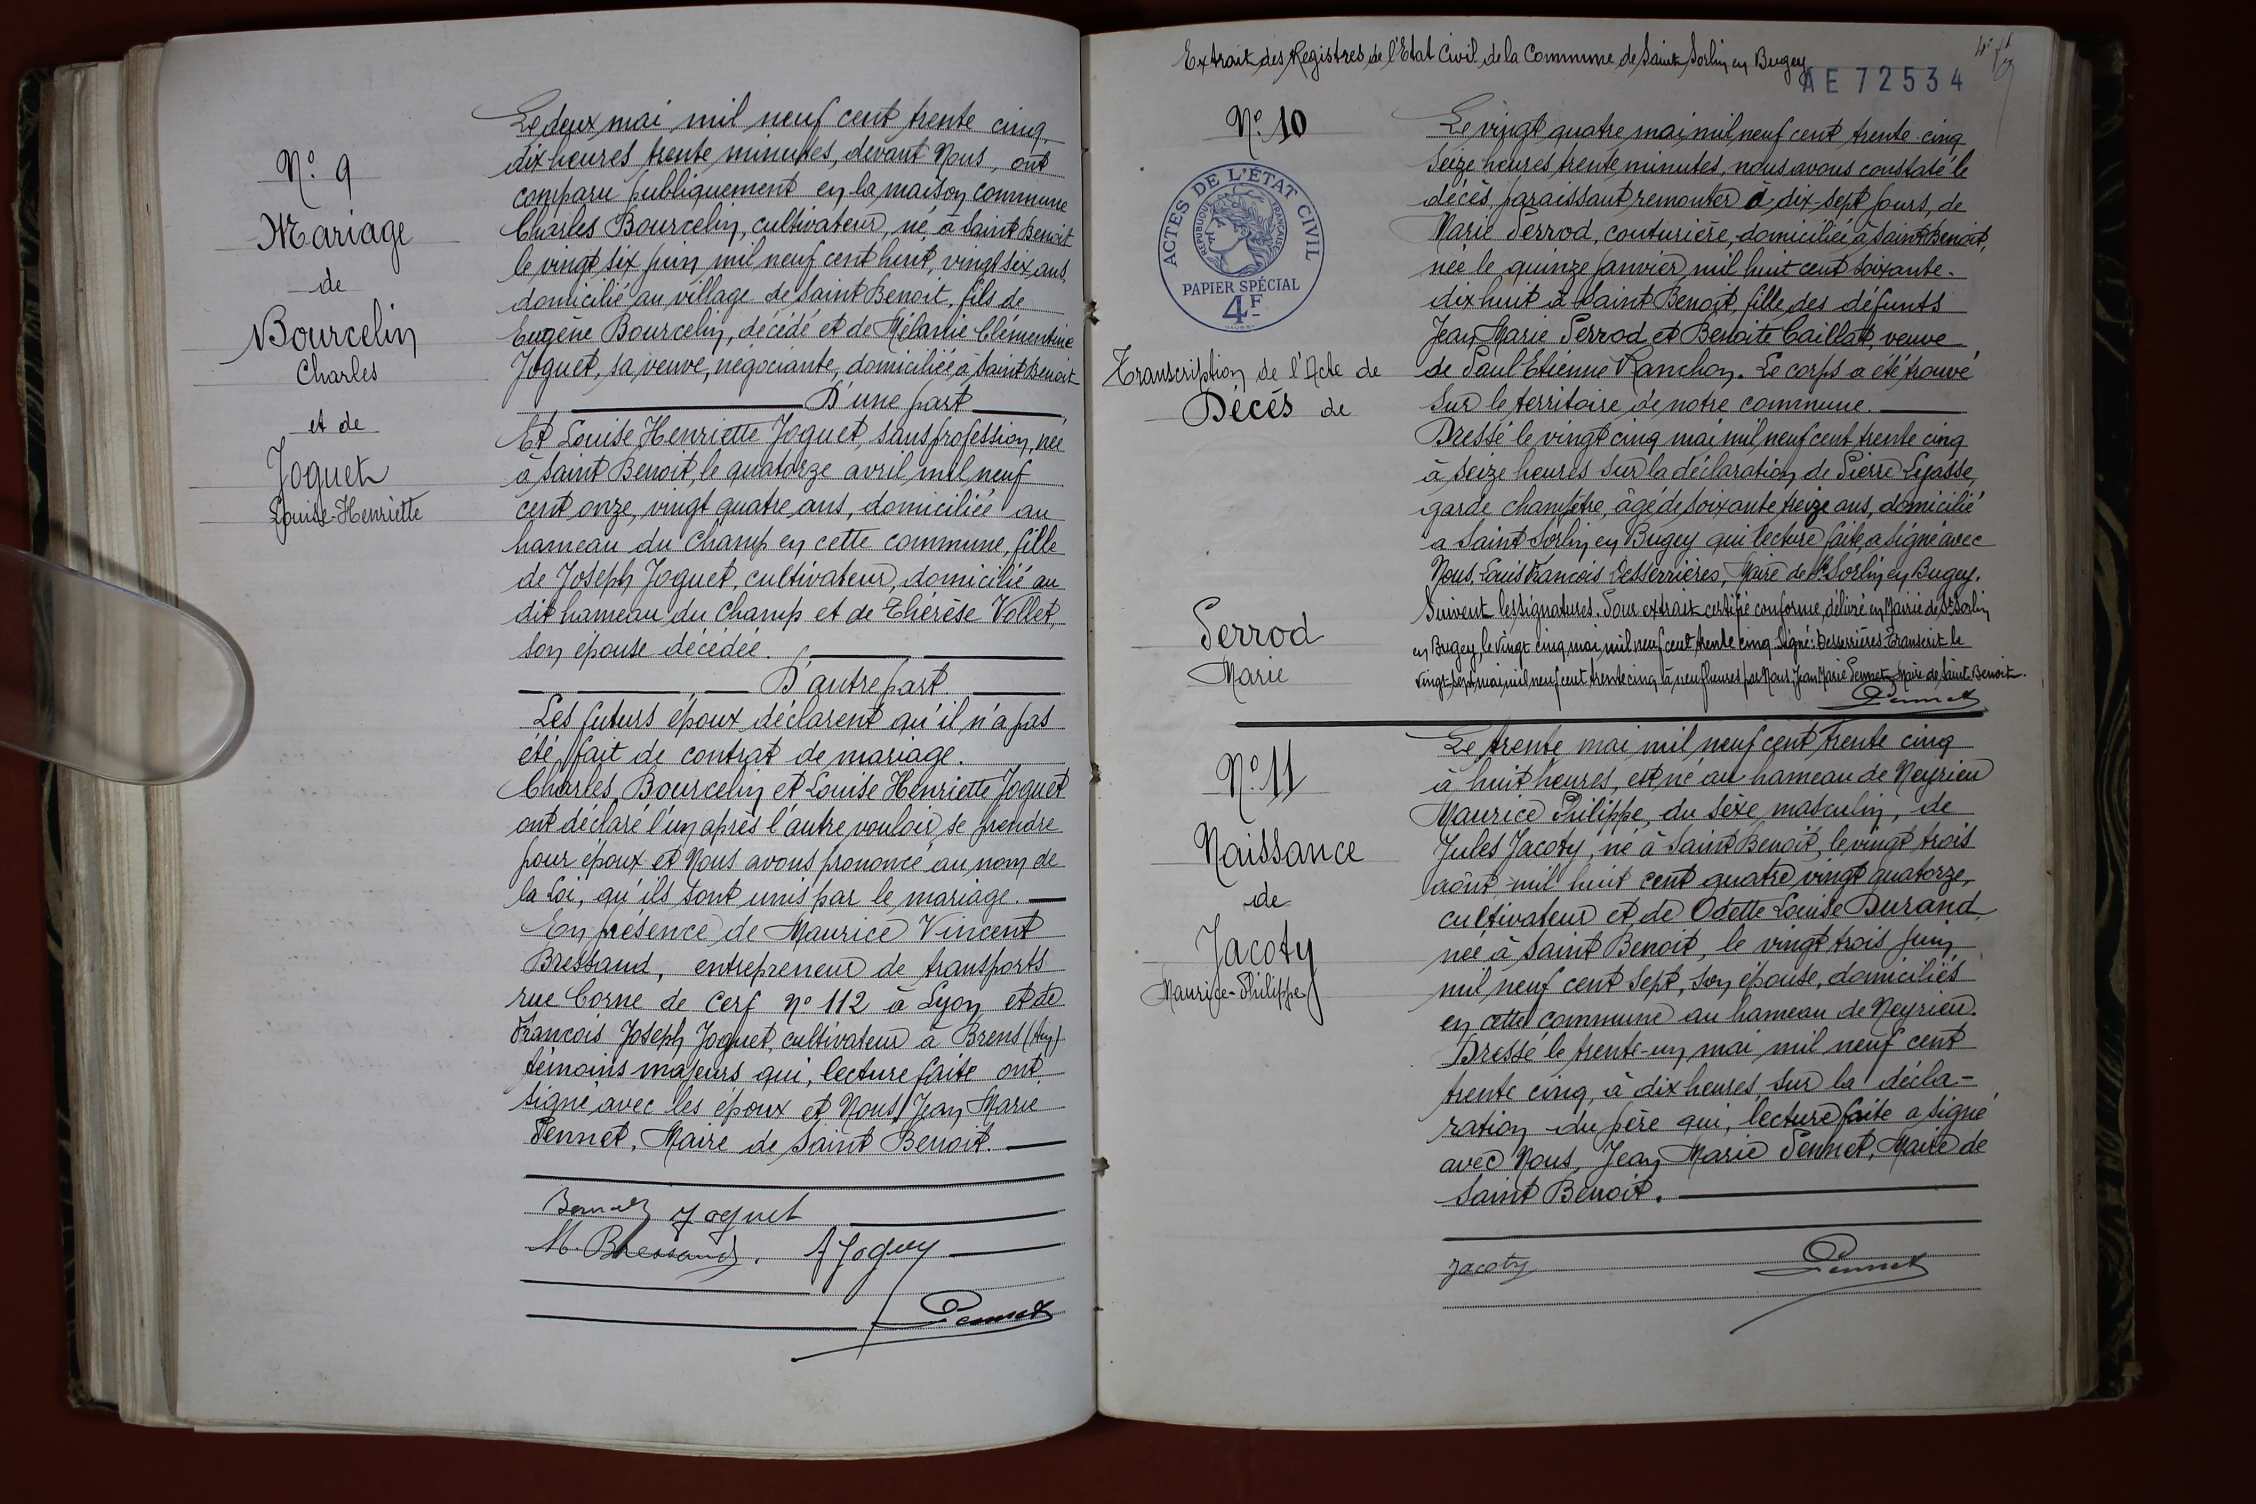 N° 9
Mariage
de
Bourcelin
Charles
et de
Joguet
Louise-Henriette
Le deux mai mil neuf cent trente cinq
dix heures trente minutes, devant Nous, ont
comparu publiquement en la maison commune
Charles Bourcelin, cultivateur, né à Saint Benoit
le vingt six juin mil neuf cent huit, vingt six ans,
domicilié au village de Saint Benoit, fils de
Eugène Bourcelin, décédé et de Mélanie Clémentine
Joguet, sa veuve, négociante, domiciliée à Saint Benoit
D'une part
Et Louise Henriette Joguet, sans profession, née
à Saint Benoit, le quatorze avril mil neuf
cent onze, vingt quatre ans, domiciliée au
hameau du Champ en cette commune, fille
de Joseph Joguet, cultivateur, domicilié au
dit hameau du Champ et de Thérèse Vollet,
son épouse décédée.
D'autre part
Les futurs époux déclarent qu'il n'a pas
été fait de contrat de mariage.
Charles Bourcelin et Louise Henriette Joguet
ont déclaré l'un après l'autre vouloir se prendre
pour époux et Nous avons prononcé au nom de
la Loi, qu'ils sont unis par le mariage.
En présence de Maurice Vincent
Bressand, entrepreneur de transports
rue Corne de Cerf n° 112 à Lyon et de
Francois Joseph Joguet, cultivateur à Brens (Ain)
témoins majeurs qui, lecture faite ont
signé avec les époux et Nous, Jean Marie
Pennet, Maire de Saint Benoit.
Joguet
M. Bressand. f Joguet
Pennet
Extrait des Registres de l'Etat Civil de la Commune de Saint Sorlin en Bugey
AE 72534
N° 10
ACTES DE L'ÉTAT CIVIL
RÉPUBLIQUE FRANÇAISE
PAPIER SPÉCIAL
4F
Transcription de l'Acte de
Décés de
Perrod
Marie
Le vingt quatre mai mil neuf cent trente cinq
Seize heures trente minutes, nous avons constaté le
décès, paraissant remonter à dix-sept jours, de
Marie Perrod, couturière, domiciliée à Saint Benoit,
née le quinze janvier mil huit cent soixante-
dix huit à Saint Benoit, fille des défunts
Jean Marie Perrod et Benoite Caillat, veuve
de Paul Etienne Ranchon. Le corps a été trouvé
sur le territoire de notre commune.
Dressé le vingt cinq mai mil neuf cent trente cinq
à seize heures sur la déclaration de Pierre Lyasse,
garde champêtre, âgé de soixante treize ans, domicilié
a Saint Sorlin en Bugey qui lecture faite, a signé avec
Nous, Louis Francois Desserrières, Maire de St Sorlin en Bugey.
Suivent les signatures. Pour extrait certifié conforme, délivré en Mairie de St Sorlin
en Bugey, le vingt cinq mai mil neuf cent trente cinq Signé: Desserrières Transcrit le
vingt sept mai mil neuf cent trente cinq à neuf heures par Nous, Jean Marie Pennet Maire de Saint-Benoit.
Pennet
N° 11
Naissance
de
Jacoty
Maurice-Philippe
Le trente mai mil neuf cent trente cinq
à huit heures, est né au hameau de Neyrieu
Maurice Philippe, du sèxe masculin, de
Jules Jacoty, né à Saint Benoit, le vingt trois
août mil huit cent quatre vingt quatorze,
cultivateur et de Odette Louise Durand,
née à Saint Benoit, le vingt trois juin
mil neuf cent sept, son épouse, domiciliés
en cette commune au hameau de Neyrieu.
Dressé le trente-un mai mil neuf cent
trente cinq, à dix heures, sur la décla-
ration du père qui, lecture faite a signé
avec Nous, Jean Marie Pennet, Maire de
Saint Benoit.
Jacoty Pennet